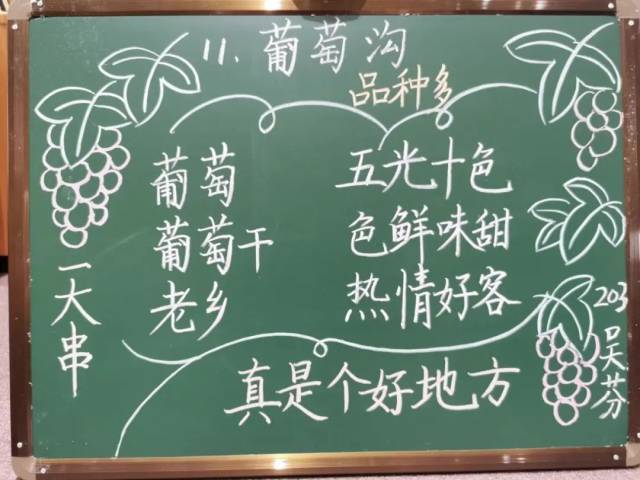 11. 葡萄沟
品种多
葡萄 五光十色
葡萄干 色鲜味甜
老乡 热情好客
一大串
真是个好地方
203
吴芬